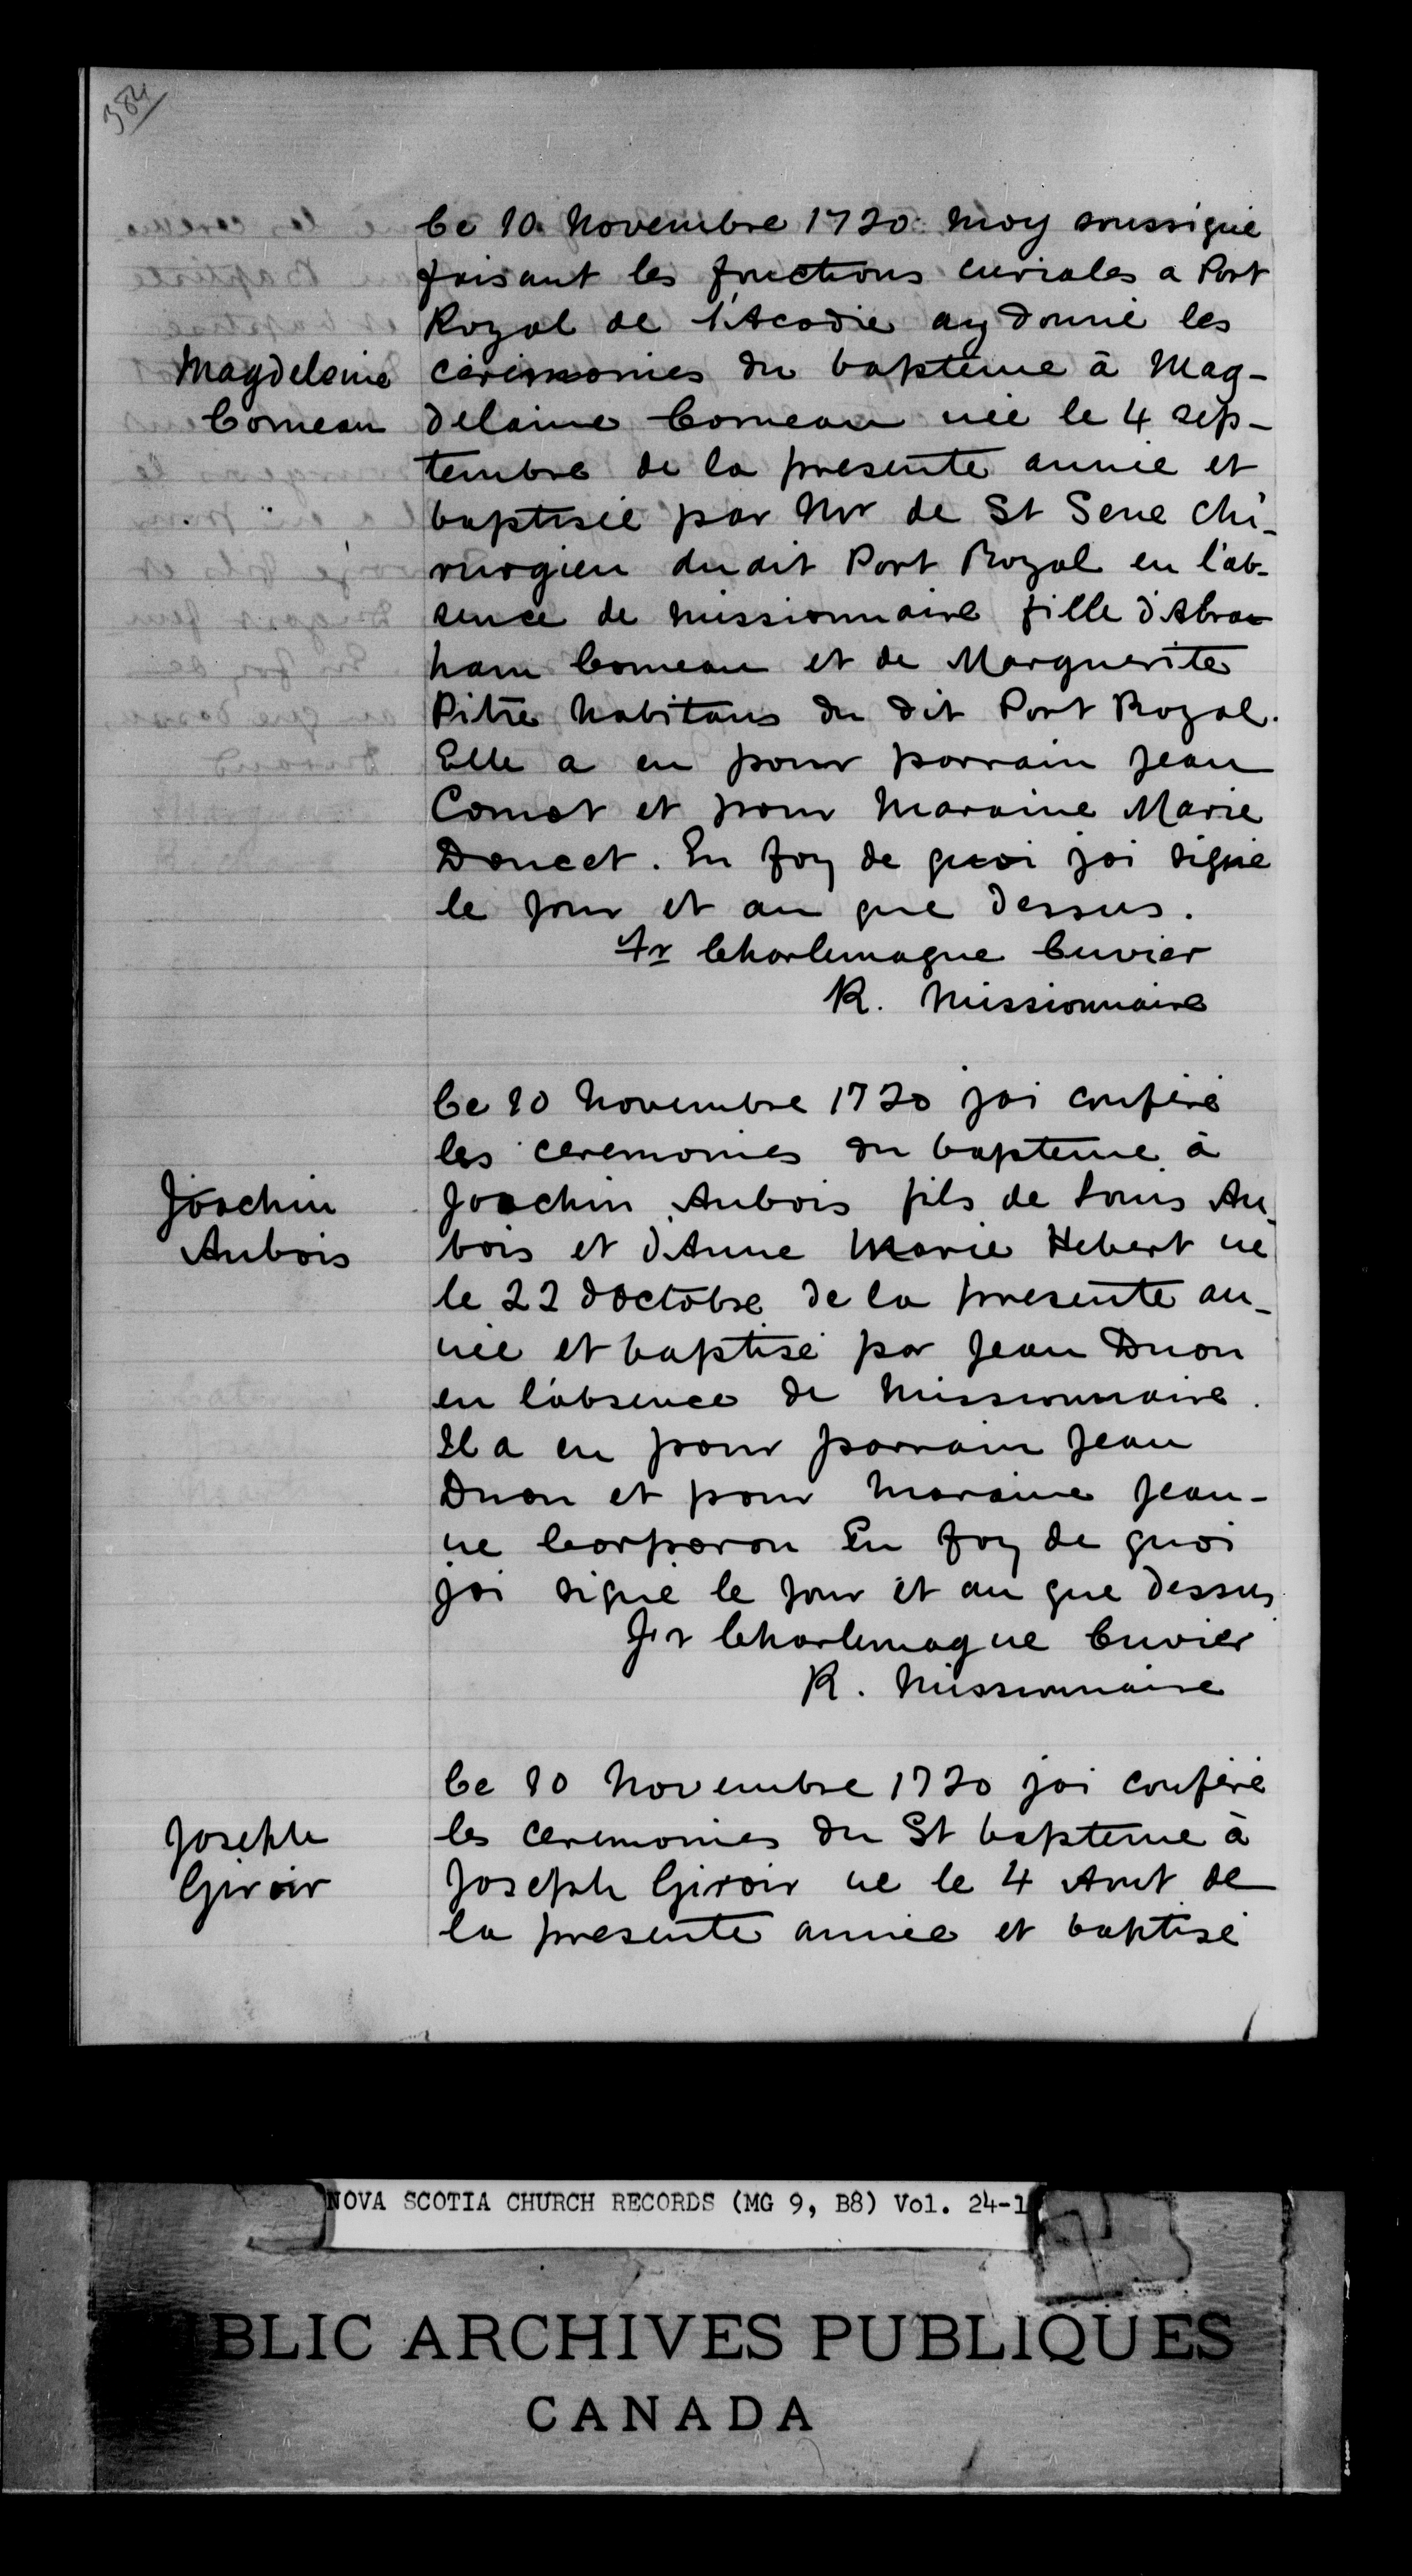 384
Ce 10 Novembre 1720 moy soussigné
faisant les fonctions curiales a Port
Royal de l'Acadie ay donné les
Magdeleine cérémonies du baptême à Mag-
Comeau delaine Comeau née le 4 sep-
tembre de la presente année et
baptisée par Mr de St Sene chi-
rurgien du dit Port Royal en l'ab-
sence de missionnaire fille d'Abra-
ham Comeau et de Marguerite
Pitre habitans du dit Port Royal.
Elle a eu pour parrain Jean
Comot et pour maraine Marie
Doucet. En foy de quoi jai signé
le jour et an que dessus.
fr Charlemagne Cuvier
R. Missionnaire
Ce 10 Novembre 1720 jai conféré
les ceremonies du bapteme à
Joachin Joachin Aubois fils de Louis Au-
Aubois bois et d'Anne Marie Hebert ne
le 22 doctobre de la presente an-
née et baptisé par Jean Duon
en l'absence de Missionnaire.
Il a eu pour parrain Jean
Duon et pour maraine Jean-
ne Corporon En foy de quoi
jai signé le jour et an que dessus
fr Charlemagne Cuvier
R. Missionnaire
Ce 10 Novembre 1720 jai conféré
Joseph les ceremonies du St bapteme à
Giroir Joseph Giroir ne le 4 Aout de
la presente année et baptisé
NOVA SCOTIA CHURCH RECORDS (MG 9, B8) Vol. 24-1
BLIC ARCHIVES PUBLIQUES
CANADA